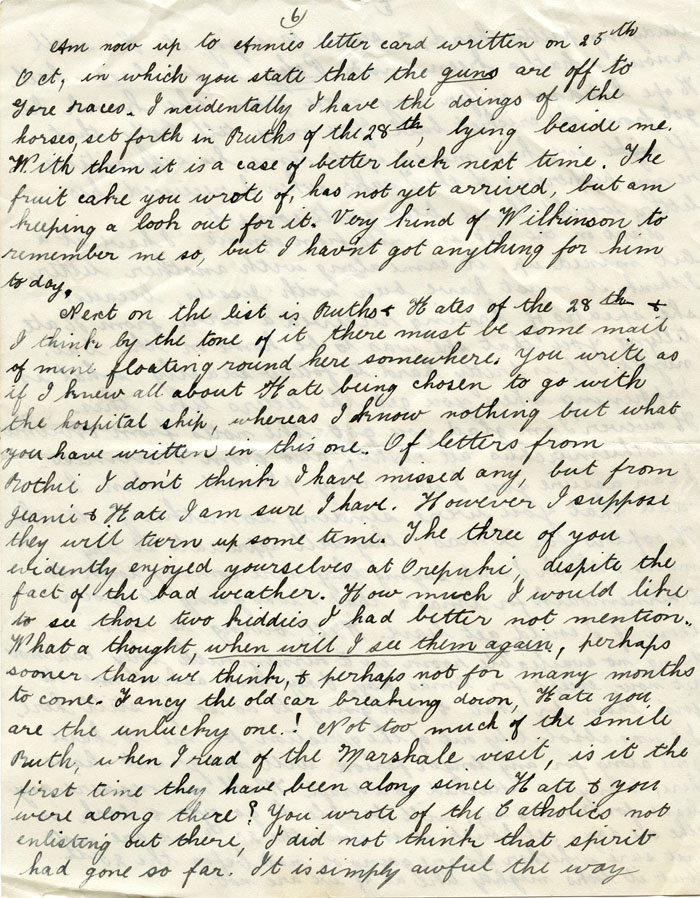 6
Am now up to Annies letter card written on 25th
Oct, in which you state that the guns are off to
Gore races. Incidentally I have the doings of the
horses, set forth in Ruths of the 28th, lying beside me.
With them it is a case of better luck next time. The
fruit cake you wrote of, has not yet arrived, but am
keeping a look out for it. Very kind of Wilkinson to
remember me so, but I havn't got anything for him
to day.
Next on the list is Ruths & Kates of the 28th &
I think by the tone of it there must be some mail
of mine floating round here somewhere. You write as
if I knew all about Kate being chosen to go with
the hospital ship, whereas I know nothing but what
you have written in this one. Of letters from
Rothie I don't think I have missed any, but from
Jeanie & Kate I am sure I have. However I suppose
they will turn up some time. The three of you
evidently enjoyed yourselves at Orepuki, despite the
fact of the bad weather. How much I would like
to see those two kiddies I had better not mention.
What a thought, when will I see them again, perhaps
sooner than we think, & perhaps not for many months
to come. Fancy the old car breaking down, Kate you
are the unlucky one.! Not too much of the smile
Ruth, when I read of the Marshale visit, is it the
first time they have been along since Kate & you
were along there? You wrote of the Catholics not
enlisting out there, I did not think that spirit
had gone so far. It is simply awful the way